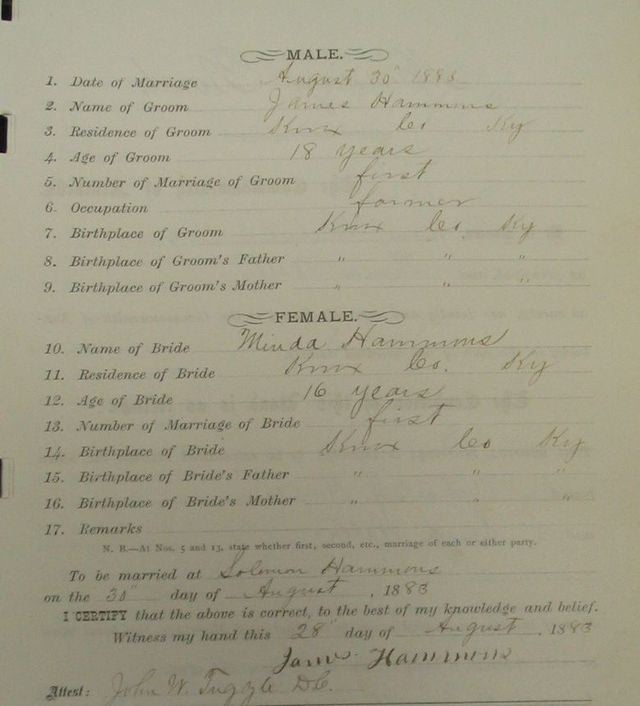 MALE.
1. Date of Marriage August 30" 1883
2. Name of Groom James Hammons
3. Residence of Groom Knox Co Ky
4. Age of Groom 18 years
5. Number of Marriage of Groom first
6. Occupation farmer
7. Birthplace of Groom Knox Co. Ky
8. Birthplace of Groom's Father " " "
9. Birthplace of Groom's Mother " " "
FEMALE.
10. Name of Bride Minda Hammons
11. Residence of Bride Knox Co. Ky
12. Age of Bride 16 years
13. Number of Marriage of Bride first
14. Birthplace of Bride Knox Co Ky
15. Birthplace of Bride's Father " " "
16. Birthplace of Bride's Mother " " "
17. Remarks
N. B.—At Nos. 5 and 13, state whether first, second, etc., marriage of each or either party.
To be married at Solomon Hammons
on the 30" day of August, 1883
I CERTIFY that the above is correct, to the best of my knowledge and belief.
Witness my hand this 28" day of August, 1883
James Hammons
Attest: John W. Tuggle D.C.